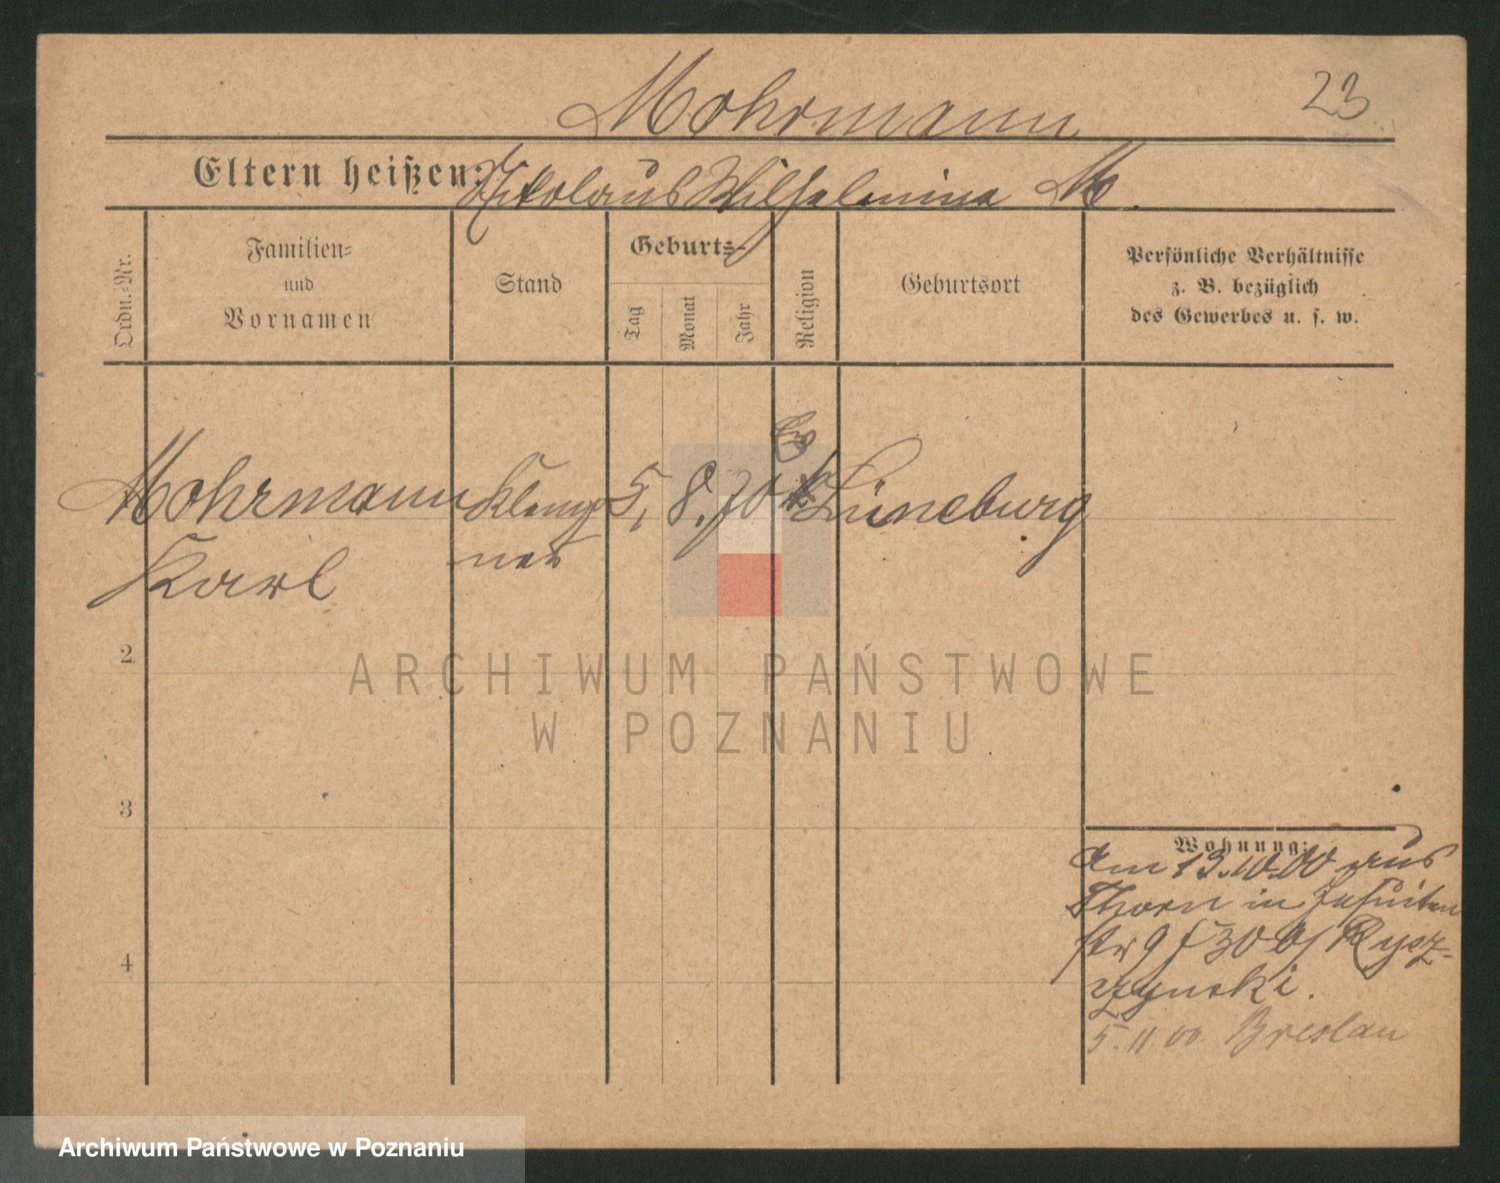 23
Mohrmann
Eltern heißen: Nikolaus Wilhelmina M.
Ordn.-Nr.
Familien-
und
Vornamen
Stand
Geburts-
Tag
Monat
Jahr
Religion
Geburtsort
Persönliche Verhältnisse
z. B. bezüglich
des Gewerbes u. s. w.
Ev
Mohrmann Klemp 5. 8. 70 Lüneburg
Karl ner
2
3
4
Wohnung:
am 13.10.00 aus
Thorn in Jesuiten
str 9 b/ Rysz-
zynski.
5.11.00. Breslau
ARCHIWUM PAŃSTWOWE
W POZNANIU
Archiwum Państwowe w Poznaniu